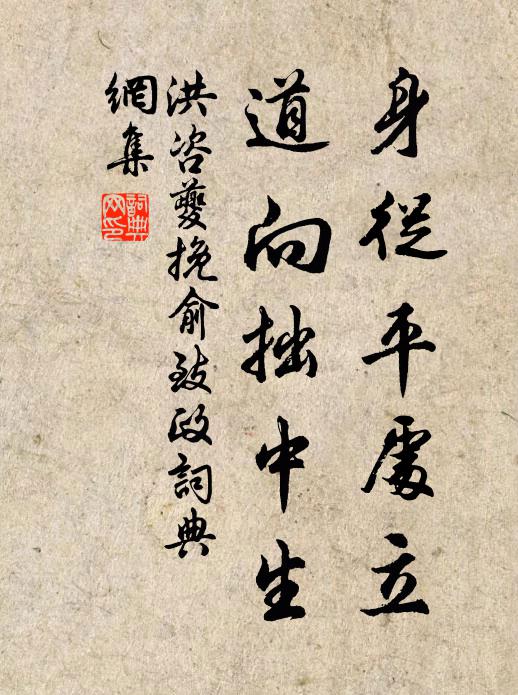 身從平處立
道向拙中生
洪咨夔挽俞致政詞典
網集
詞典網印